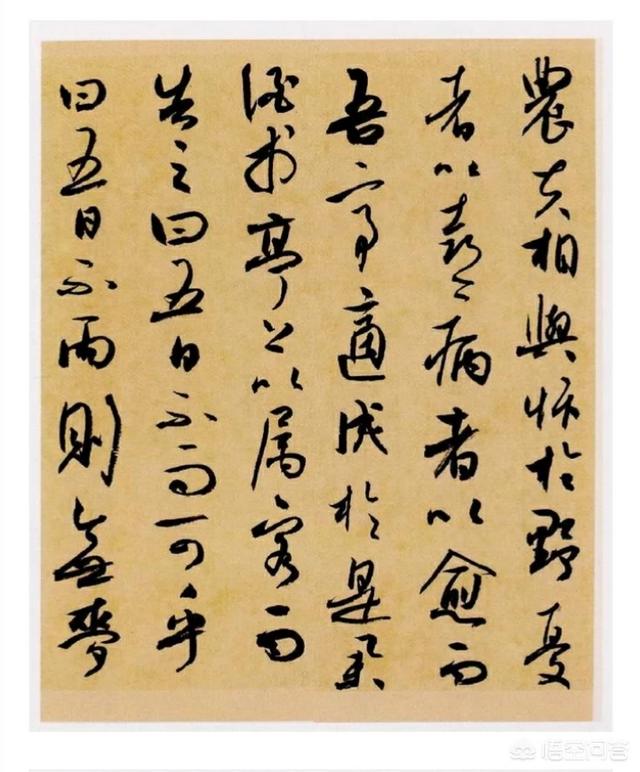 農夫相與忭於野憂
者以喜病者以愈而
吾亭適成於是舉
酒於亭上以属客而
告之曰五日不雨可乎
曰五日不雨則無麥
悟空问答